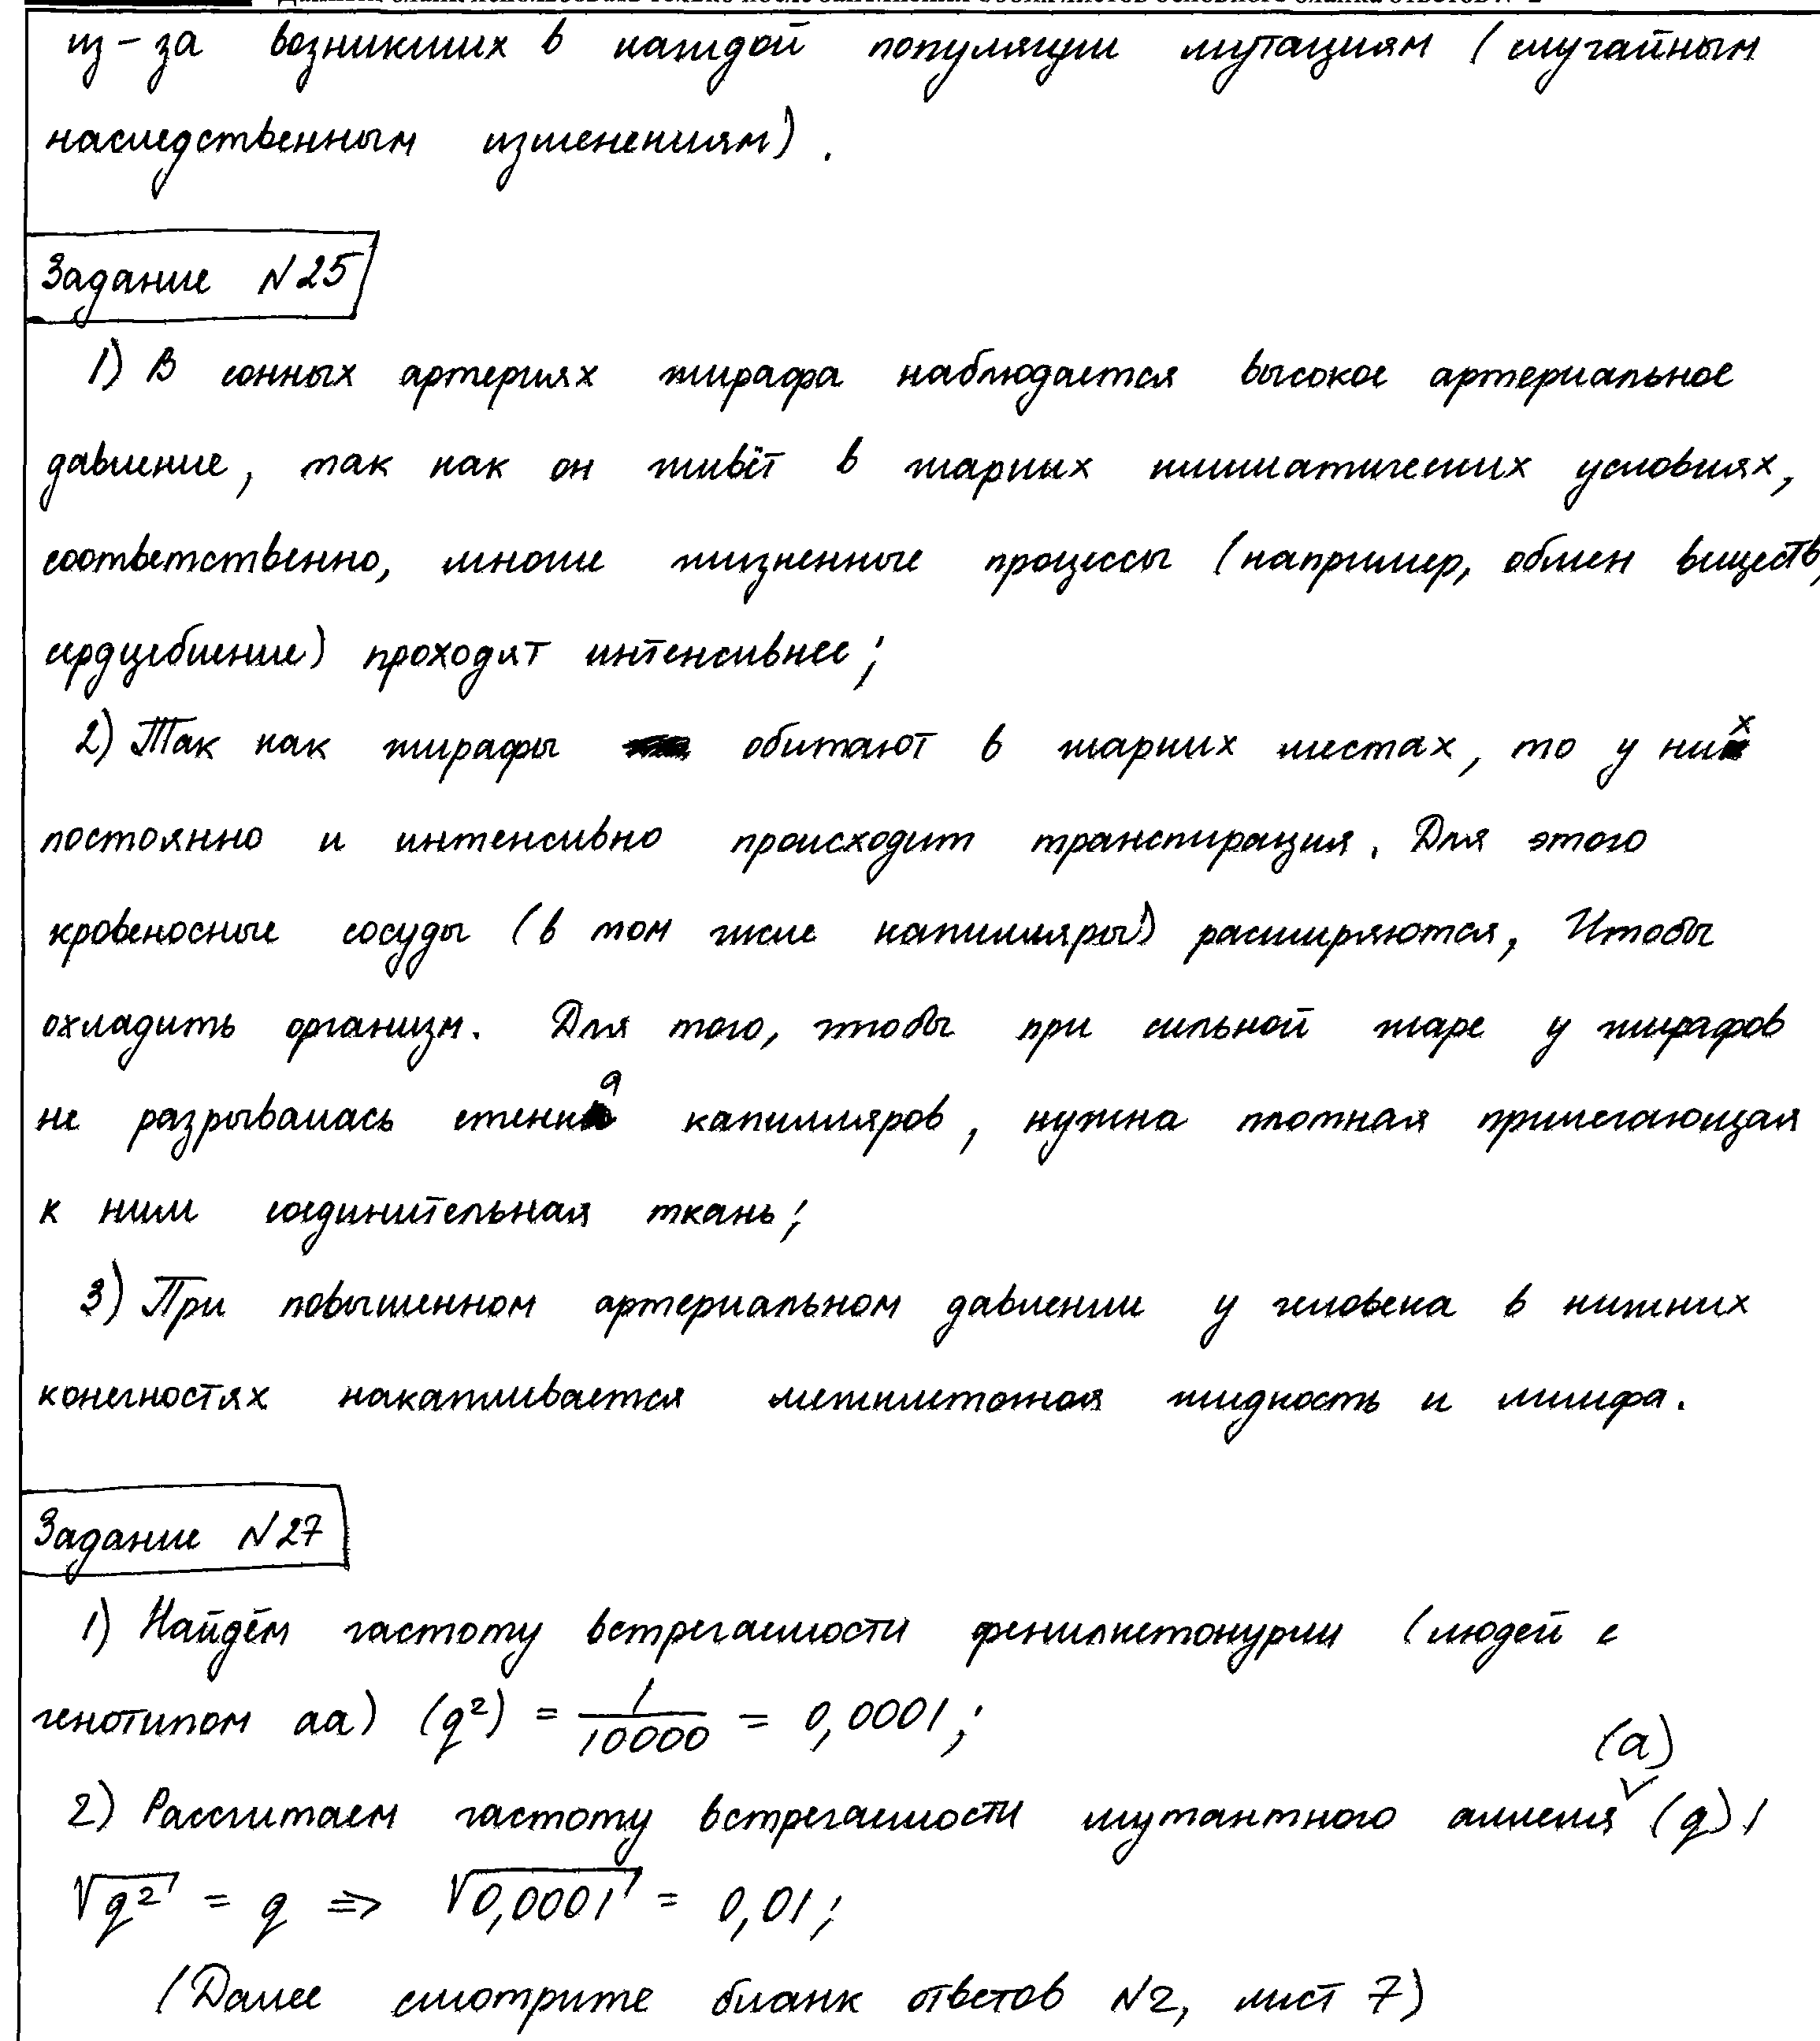 из-за возникших в каждой популяции мутациям (случайным
наследственным изменениям).
Задание №25
1) В сонных артериях жирафа наблюдается высокое артериальное
давление, так как он живёт в жарких климатических условиях,
соответственно, многие жизненные процессы (например, обмен веществ,
сердцебиение) проходят интенсивнее;
2) Так как жирафы обитают в жарких местах, то у них
постоянно и интенсивно происходит транспирация. Для этого
кровеносные сосуды (в том числе капилляры) расширяются, чтобы
охладить организм. Для того, чтобы при сильной жаре у жирафов
не разрывалась стенка капилляров, нужна плотная прилегающая
к ним соединительная ткань;
3) При повышенном артериальном давлении у человека в нижних
конечностях накапливается межклеточная жидкость и лимфа.
Задание №27
1) Найдём частоту встречаемости фенилкетонурии (людей с
генотипом aa) (q²) = 1/10000 = 0,0001;
2) Рассчитаем частоту встречаемости мутантного аллеля (a) (q);
√q² = q => √0,0001 = 0,01;
(Далее смотрите бланк ответов №2, лист 7)